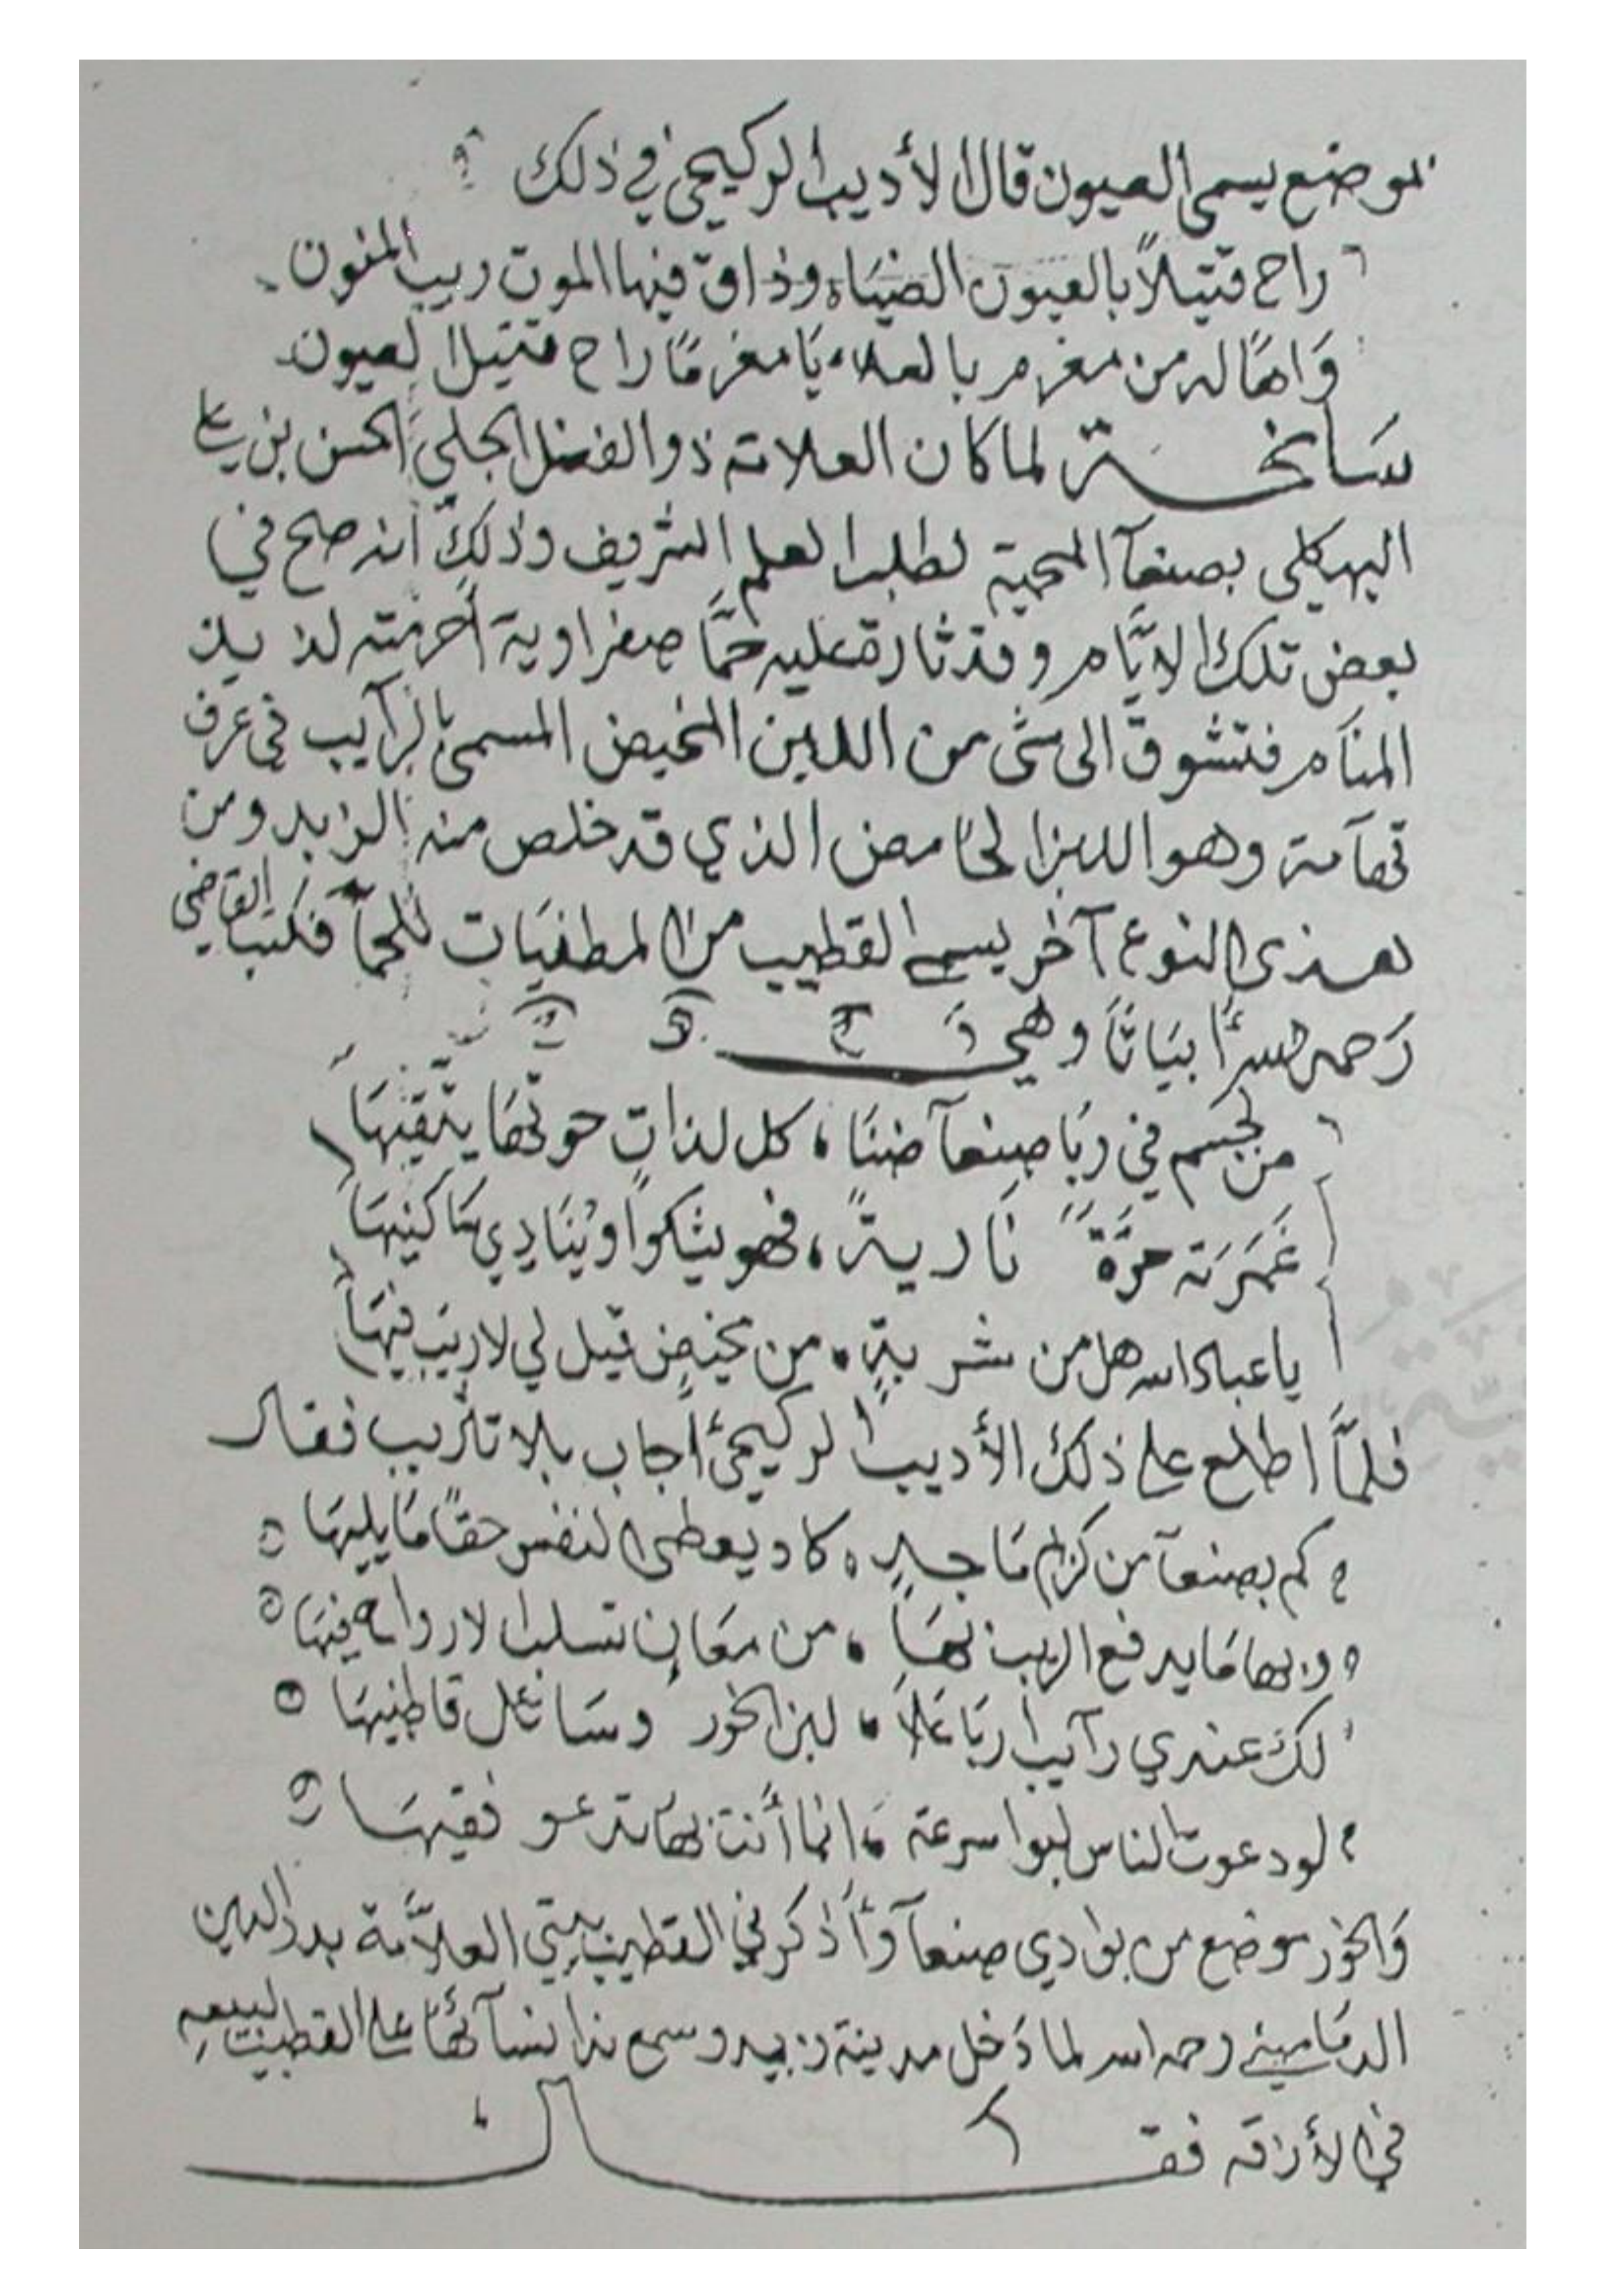 بموضع يسمى العيون قال الأديب الركيحي في ذلك
راح قتيلاً بالعيون الضياء وذاق فيها الموت ريب المنون
وَاهًا له من مغرم بالعلا يَا مغرمًا راح قتيل العيون
سَانحة لما كان العلامة ذو الفضل الجلي الحسن بن علي
البهكلي بصنعآ المحمية لطلب العلم الشريف وذلك انه صح في
بعض تلك الايَّام وقد ثارة عليه حمَّا صفراوية أحرمته لذيذ
المنَام فتشوق الى شى من اللبن المخيض المسمى بالرآيب في عرف
تهآمة وهو اللبن الحَامض الذي قد خلص منه الزبد ومن
هذى النوع آخر يسمى القطيب من المطفيَات للحمآ فكتب القاضي
رَحمه الله أبيَاتًا وهي
من لجسم في ربَا صنعآ ضنَنا كل لذاتٍ حوتهَا يتقيهَا
غَمَرَته حرَّةً نَارية فهو يشكوا ويُنَادِي سَاكنيهَا
يا عباد الله هل من شربةٍ من مخيضٍ قيل لي لاريَب فيهَا
فلمَّا اطلع على ذلك الأديب الركيحي أجاب بلا تثريب فقال
كم بصنعآ من كرام مَاجدٍ كاد يعطى النفس حقًا مَايليهَا
وبها مَا يدفع الريب بهَا من معَانٍ تسلب الارواح فيهَا
لك عندي رآيب ربَا علا لبن الخور وسَائل قاطنيهَا
لو دعوت الناس لبوا سرعة انما أنت بهَا تدعو فقيهَا
وَالخور موضع من بوادي صنعآ وَأذكرني القطيب بيتي العلاَّمة بدر الدين
الدمَاميني رحمه الله لما دَخل مدينة زبيد وسمع ندا نسآئهَا على القطيب لبيعه
في الأزقة فقال